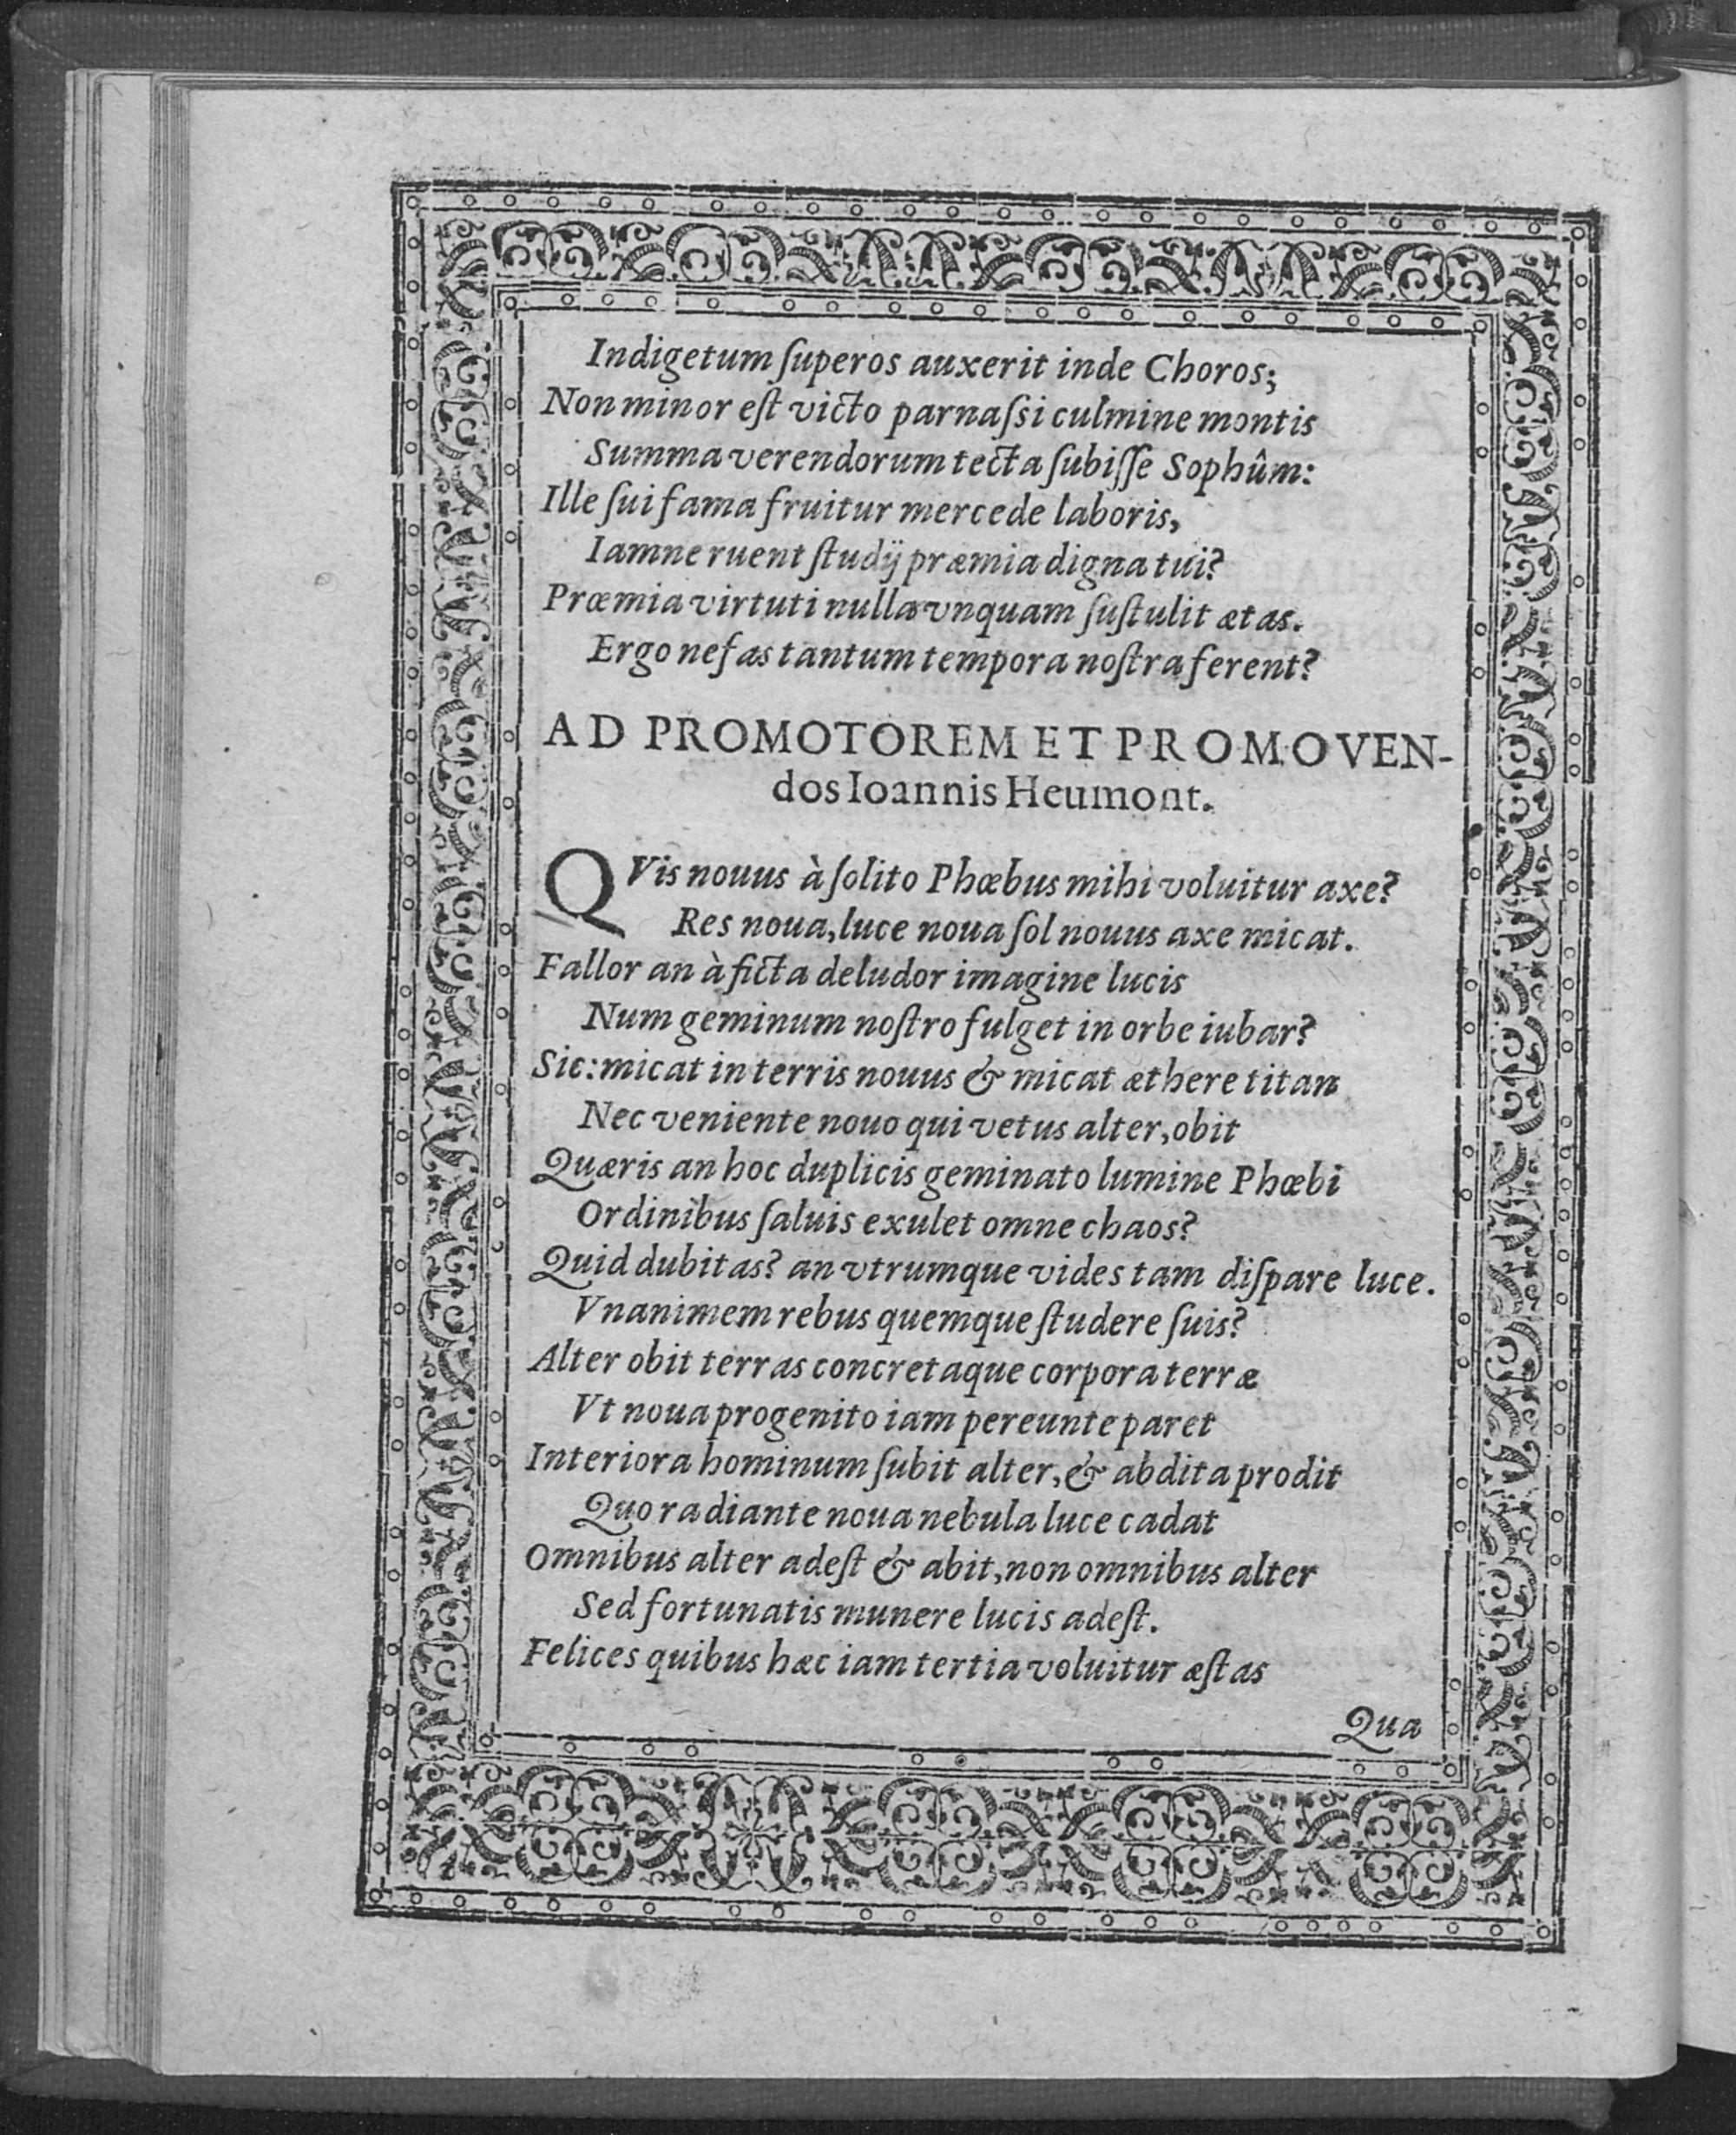 Indigetum ſuperos auxerit inde Choros;
Non minor eſt victo parnaſsi culmine montis
Summa verendorum tecta ſubiſſe Sophûm:
Ille ſui fama fruitur mercede laboris,
Iamne ruent ſtudij præmia digna tui?
Præmia virtuti nulla vnquam ſuſtulit ætas.
Ergo nefas tantum tempora noſtra ferent?
AD PROMOTOREM ET PROMOVEN-
dos Ioannis Heumont.
QVis nouus à ſolito Phœbus mihi voluitur axe?
Res noua, luce noua ſol nouus axe micat.
Fallor an à ficta deludor imagine lucis
Num geminum noſtro fulget in orbe iubar?
Sic: micat in terris nouus & micat æthere titan
Nec veniente nouo qui vetus alter, obit
Quæris an hoc duplicis geminato lumine Phœbi
Ordinibus ſaluis exulet omne chaos?
Quid dubitas? an vtrumque vides tam diſpare luce.
Vnanimem rebus quemque ſtudere ſuis?
Alter obit terras concretaque corpora terræ
Vt noua progenito iam pereunte paret
Interiora hominum ſubit alter, & abdita prodit
Quo radiante noua nebula luce cadat
Omnibus alter adeſt & abit, non omnibus alter
Sed fortunatis munere lucis adeſt.
Felices quibus hæc iam tertia voluitur æſtas
Qua